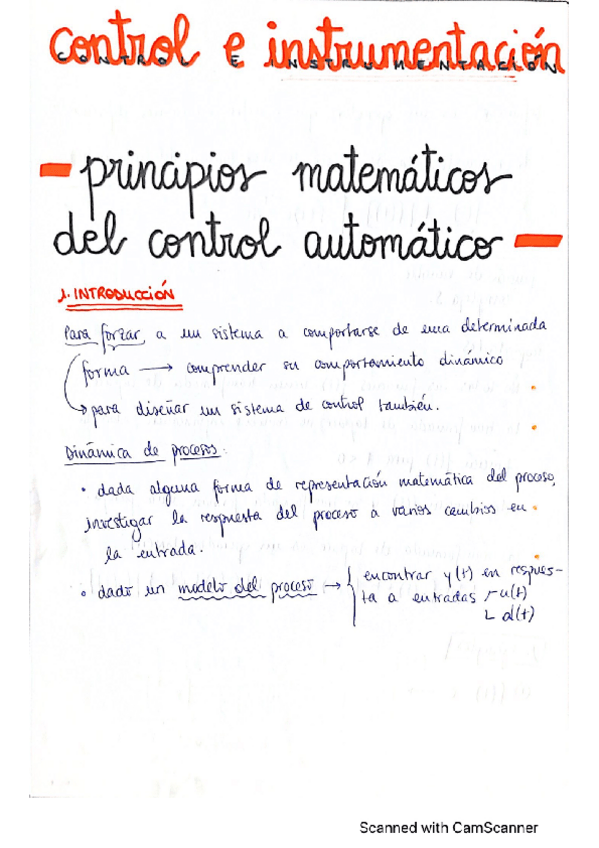 control e instrumentación
CONTROL E INSTRUMENTACIÓN
- principios matemáticos
del control automático -
1. INTRODUCCIÓN
Para forzar a un sistema a comportarse de una determinada
forma → comprender su comportamiento dinámico
→ para diseñar un sistema de control también.
Dinámica de procesos:
• dada alguna forma de representación matemática del proceso,
investigar la respuesta del proceso a varios cambios en
la entrada.
• dado un modelo del proceso → { encontrar y(t) en respues-
ta a entradas u(t)
d(t)
Scanned with CamScanner